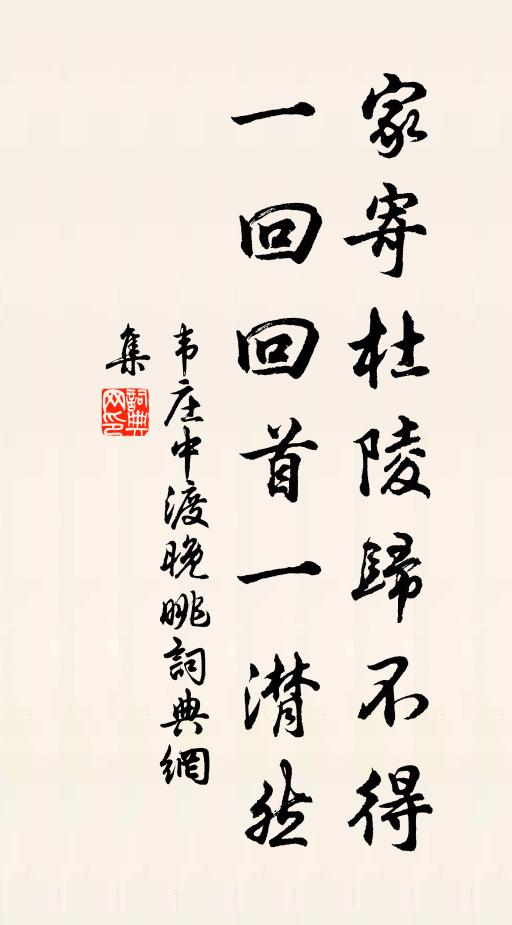 家寄杜陵歸不得
一回回首一潸然
韦庄中渡晚眺詞典網
集
詞典網印